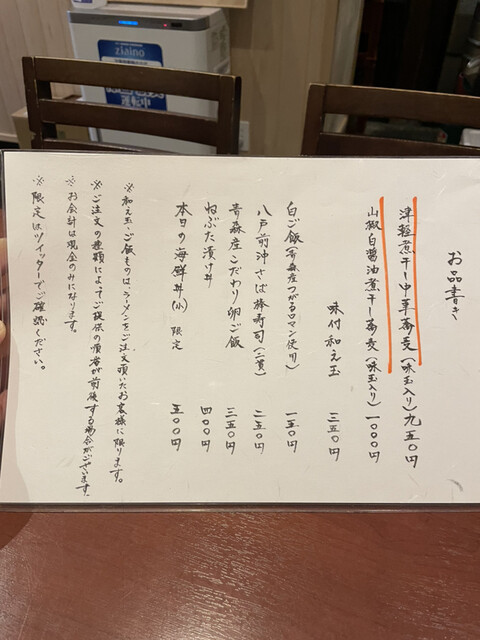 お品書き
津軽煮干し中華蕎麦(味玉入り)九五〇円
山椒白醤油煮干し蕎麦(味玉入り)一〇〇〇円
味付和え玉 三五〇円
白ご飯(青森産つがるロマン使用) 一五〇円
八戸前沖さば棒寿司(二貫) 二五〇円
青森産こだわり卵ご飯 三五〇円
ねぶた漬け丼 四〇〇円
本日の海鮮丼(小) 限定 五〇〇円
※和え玉・ご飯ものは、ラーメンをご注文頂いたお客様に限ります。
※ご注文の種類によってご提供の順番が前後する場合がございます。
※お会計は現金のみになります。
※限定はツイッターでご確認ください。
ziaino
運転中